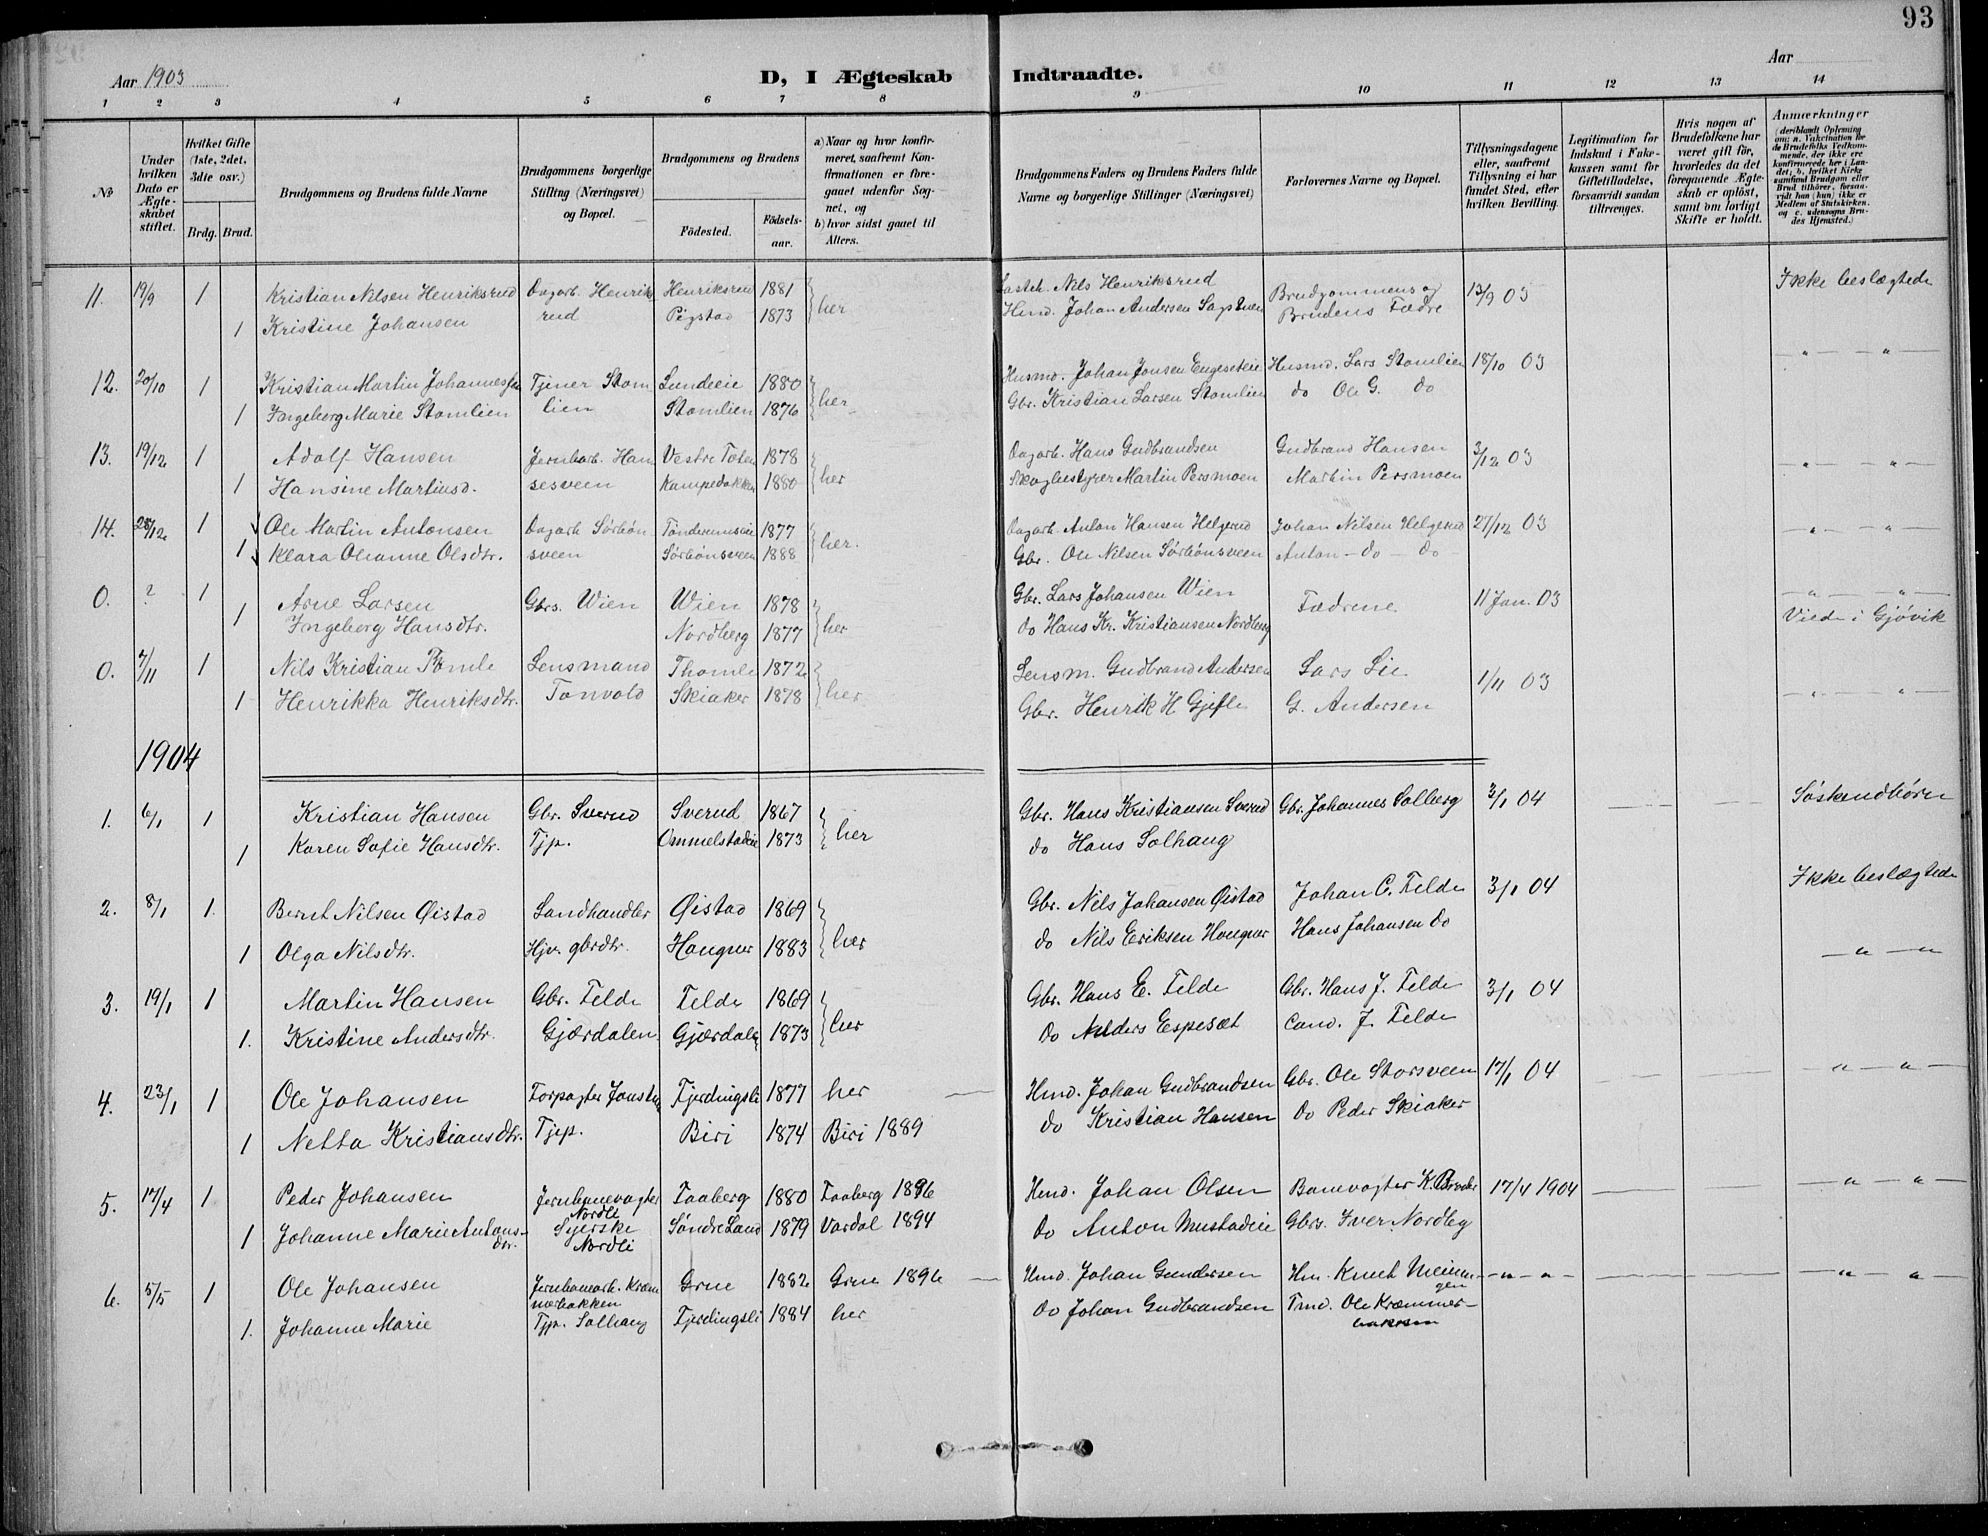 93
Aar 1903 D, I Ægteskab Indtraadte. Aar
1 2 3 4 5 6 7 8 9 10 11 12 13 14
No
Under hvilken Dato er Ægteskabet stiftet.
Hvilket Gifte (1ste, 2det, 3die osv.)
Brdg. Brud.
Brudgommens og Brudens fulde Navne
Brudgommens borgerlige Stilling (Næringsvei) og Bopæl.
Brudgommens og Brudens
Födested. Födsels-aar.
a) Naar og hvor konfirmeret, saafremt Konfirmationen er foregaaet udenfor Sognet, og
b) hvor sidst gaaet til Alters.
Brudgommens Faders og Brudens Faders fulde Navne og borgerlige Stillinger (Næringsvei)
Forlovernes Navne og Bopæl.
Tillysningsdagene eller, saafremt Tillysning ei har fundet Sted, efter hvilken Bevilling.
Legitimation for Indskud i Enkekassen samt for Giftetilladelse, forsaavidt saadan tiltrænges.
Hvis nogen af Brudefolkene har været gift før, hvorledes da det foregaaende Ægteskab er oplöst, samt om lovligt Skifte er holdt.
Anmærkninger
11. 19/9 1 Kristian Nilsen Henriksrud Dagarb. Henriks Henriksrud 1881 her Nils Henriksrud Brudgommens og 13/9 03 Ikke beslægtede
1 Kristine Johansen rud Pigstad 1873 Johan Andersen Brudens Fædre
12. 20/10 1 Kristian Martin Johannessen Tjener Stom Lundeie 1880 her Husmd. Johan Jonsen Engeseteie Husmd. Lars Stomlien 18/10 03 " "
1 Ingeborg Marie Stomlien lien Stomlien 1876 Gbr. Kristian Larsen Stomlien do Ole G. do
13. 19/12 1 Adolf Hansen Jernbarb. Han Vestre Toten 1878 her Dagarb. Hans Gudbrandsen Gudbrand Hansen 3/12 03 " "
1 Hansine Martinsd. sesveen Kampebakken 1880 Skogbestyrer Martin Persmoen Martin Persmoen
14. 28/12 1 Ole Martin Antonsen Dagarb Sörbön 1877 her. Dagarb. Anton Hansen Helgerud Johan Nilsen Helgerud 27/12 03 " "
1 Klara Oleanne Olsdtr. sveen Sörbönsveen 1888 Gbr. Ole Nilsen Sörbönsveen Anton - do - do -
0. ? 1 Arne Larsen Gbrs. Wien Wien 1878 her Gbr. Lars Johansen Wien Fædrene 11 Jan. 03 " "
1 Ingeborg Hansdtr. Nordberg 1877 do Hans Kr. Kristiansen Nordberg Viede i Gjøvik
0. 7/11 1 Nils Kristian Tomle Lensmand Thomle 1872 her Lensm. Gudbrand Andersen Lars Lie 1/11 03
1 Henrikka Henriksdtr. Tonvold Skiaker 1878 Gbr. Henrik H. Gjefle G. Andersen " "
1904
1. 6/1 1 Kristian Hansen Gbr. Sverud Sverud 1867 her Gbr. Hans Kristiansen Sverud Gbr. Johannes Solberg 3/1 04 Söskendbörn
1 Karen Sofie Hansdtr. Tjp. Ommelstadeie 1873 do Hans Solhaug
2. 8/1 1. Bernt Nilsen Øistad Landhandler Øistad 1869 her Gbr. Nils Johansen Øistad Johan C. Felde 3/1 04 Ikke beslægtede
1 Olga Nilsdtr. Hjv. gbrdtr. Hongner 1883 do Nils Eriksen Hongner Hans Johansen do " "
3. 19/1 1 Martin Hansen Gbr. Felde Felde 1869 her Gbr. Hans E. Felde Gbr. Hans J. Felde 3/1 04
1. Kristine Andersdtr. Gjærdalen Gjærdalen 1873 Do Anders Espesæt Cand. J. Felde
4. 23/1 1 Ole Johansen Forpagter Fjerdingsli 1877 her Hmd. Johan Gudbrandsen Gbr. Ole Storsveen 17/1 04 " "
1 Netta Kristiansdtr. Tjep. Biri 1874 Biri 1889 do Kristian Hansen Do Peder Skiaker
5. 17/4 1 Peder Johansen Jernbanevogter Nordli Faaberg 1880 Faaberg 1896 Hmd. Johan Olsen Banevogter K. 17/4 1904 " "
1 Johanne Marie Antonsdtr. Syerske Nordli Söndre Land 1879 Vardal 1894 Do Anton Mustadeie Gbrs. Iver Nordby
6. 5/5 1 Ole Johansen Jernbanearb. Kræmmerbakken Grue 1882 Grue 1896 Hmd. Johan Gundersen Hm. Knut - " - " - " "
1. Johanne Marie Tjp. Solhaug Fjerdingsli 1884 her do Johan Gudbrandsen Ole Kræmmerbakken